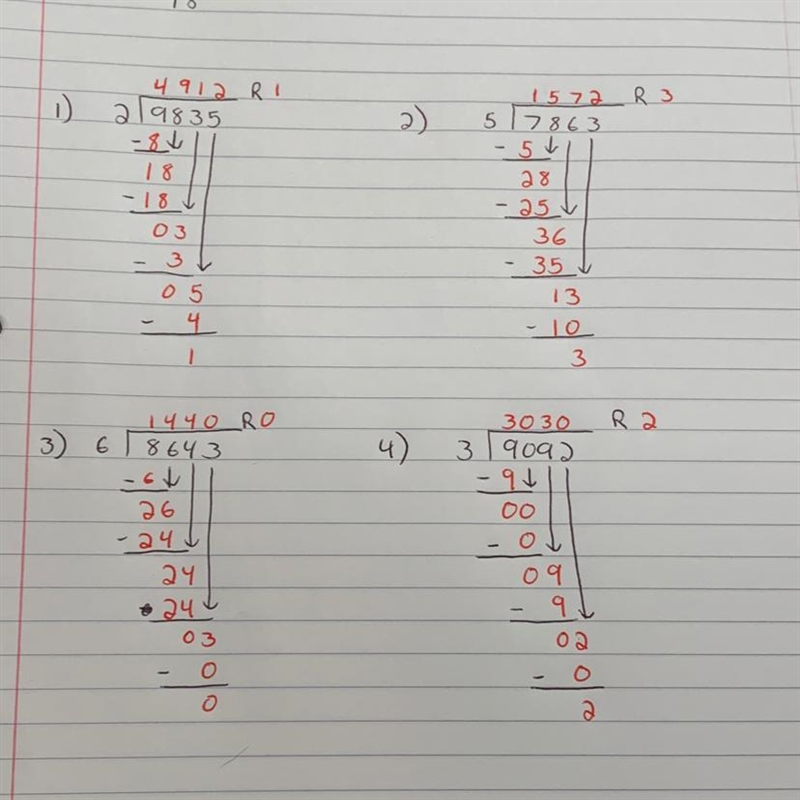 18
1) 4912 R 1
2 9835
- 8
18
- 18
03
- 3
05
- 4
1
2) 1572 R 3
5 7863
- 5
28
- 25
36
- 35
13
- 10
3
3) 1440 R 0
6 8643
- 6
26
- 24
24
24
03
- 0
0
4) 3030 R 2
3 9092
- 9
00
- 0
09
- 9
02
- 0
2